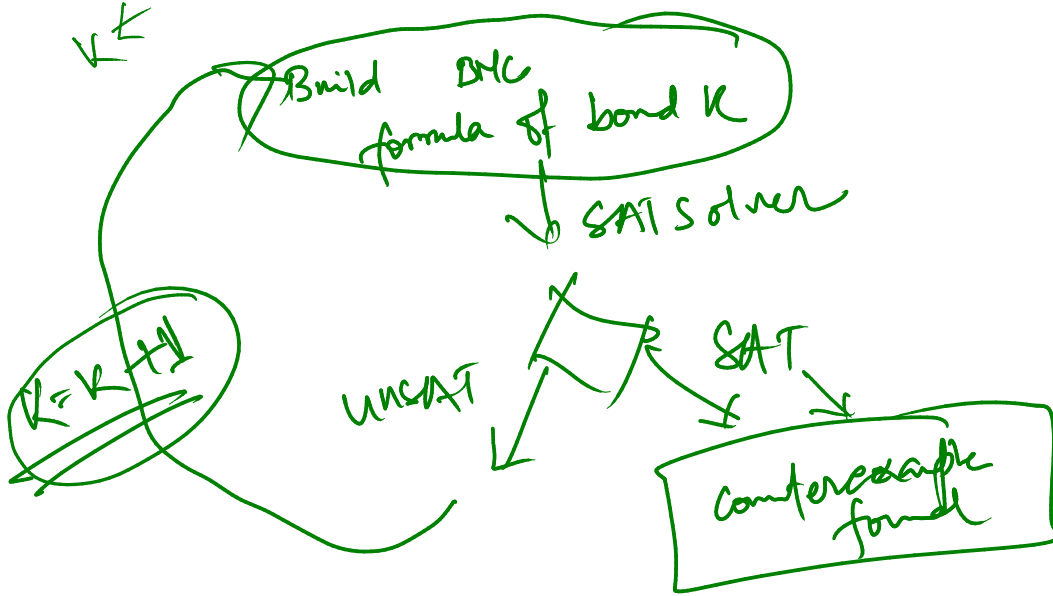 Build BMC
formula of bond K
SAT Solver
SAT
UNSAT
K = K + 1
Counterexample
found